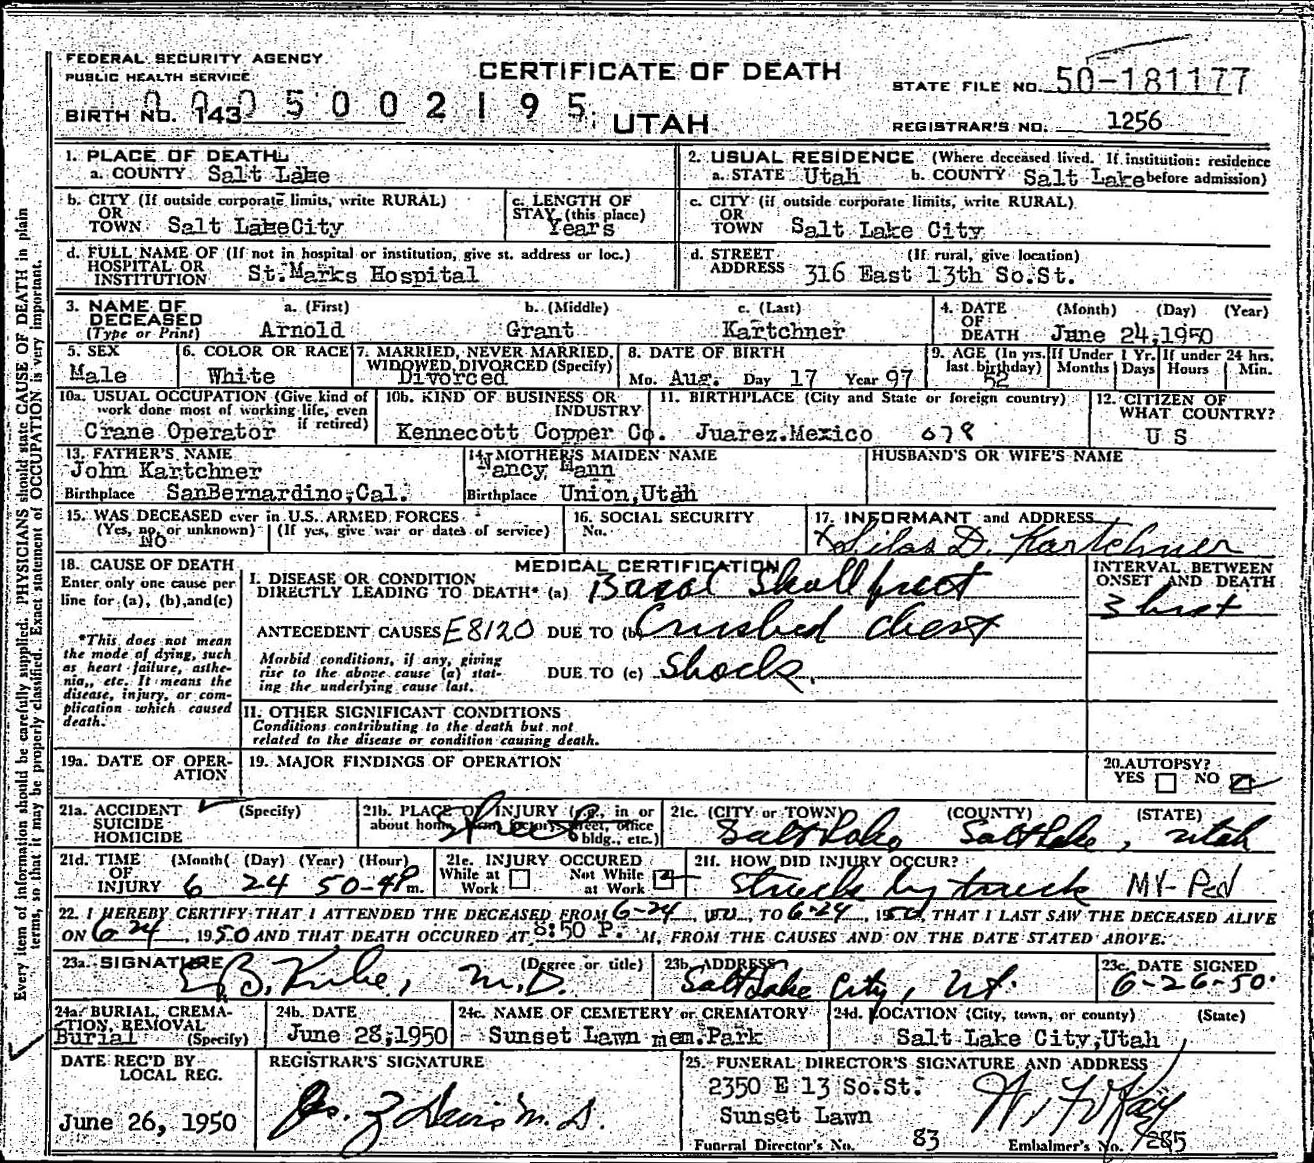 FEDERAL SECURITY AGENCY
PUBLIC HEALTH SERVICE
CERTIFICATE OF DEATH
STATE FILE NO. 50-181177
BIRTH NO. 143
0005002195
UTAH
REGISTRAR'S NO. 1256
1. PLACE OF DEATH
a. COUNTY Salt Lake
2. USUAL RESIDENCE (Where deceased lived. If institution: residence before admission)
a. STATE Utah b. COUNTY Salt Lake
b. CITY (If outside corporate limits, write RURAL)
OR
TOWN Salt LakeCity
c. LENGTH OF
STAY (this place)
Years
c. CITY (if outside corporate limits, write RURAL)
OR
TOWN Salt Lake City
d. FULL NAME OF (If not in hospital or institution, give st. address or loc.)
HOSPITAL OR
INSTITUTION St.Marks Hospital
d. STREET (If rural, give location)
ADDRESS 316 East 13th So.St.
3. NAME OF
DECEASED
(Type or Print)
a. (First) b. (Middle) c. (Last)
Arnold Grant Kartchner
4. DATE (Month) (Day) (Year)
OF
DEATH June 24,1950
5. SEX
Male
6. COLOR OR RACE
White
7. MARRIED, NEVER MARRIED,
WIDOWED, DIVORCED (Specify)
Divorced
8. DATE OF BIRTH
Mo. Aug. Day 17 Year 97
9. AGE (In yrs.
last birthday)
52
If Under 1 Yr.
Months Days
If under 24 hrs.
Hours Min.
10a. USUAL OCCUPATION (Give kind of
work done most of working life, even
if retired)
Crane Operator
10b. KIND OF BUSINESS OR
INDUSTRY
Kennecott Copper Co.
11. BIRTHPLACE (City and State or foreign country)
Juarez.Mexico 078
12. CITIZEN OF
WHAT COUNTRY?
U S
13. FATHER'S NAME
John Kartchner
Birthplace SanBernardino,Cal.
14. MOTHER'S MAIDEN NAME
Nancy Mann
Birthplace Union,Utah
HUSBAND'S OR WIFE'S NAME
15. WAS DECEASED ever in U.S. ARMED FORCES
(Yes, no or unknown) (If yes, give war or dates of service)
No
16. SOCIAL SECURITY
No.
17. INFORMANT and ADDRESS
x Silas D. Kartchner
18. CAUSE OF DEATH
Enter only one cause per
line for (a), (b), and (c)
*This does not mean
the mode of dying, such
as heart failure, asthe-
nia, etc. It means the
disease, injury, or com-
plication which caused
death.
MEDICAL CERTIFICATION
I. DISEASE OR CONDITION
DIRECTLY LEADING TO DEATH* (a) Basal Skull fract
ANTECEDENT CAUSES E8120 DUE TO (b) Crushed chest
Morbid conditions, if any, giving
rise to the above cause (a) stat-
ing the underlying cause last.
DUE TO (c) Shock.
INTERVAL BETWEEN
ONSET AND DEATH
3 hrs+
II. OTHER SIGNIFICANT CONDITIONS
Conditions contributing to the death but not
related to the disease or condition causing death.
19a. DATE OF OPER-
ATION
19. MAJOR FINDINGS OF OPERATION
20. AUTOPSY?
YES NO
21a. ACCIDENT (Specify)
SUICIDE
HOMICIDE
21b. PLACE OF INJURY (e.g., in or
about home, farm, factory, street, office
bldg., etc.)
Street
21c. (CITY or TOWN) (COUNTY) (STATE)
Salt Lake, Salt Lake, Utah
21d. TIME (Month) (Day) (Year) (Hour)
OF
INJURY 6 24 50-4P m.
21e. INJURY OCCURED
While at Work Not While at Work
21f. HOW DID INJURY OCCUR?
Struck by truck MV-Ped
22. I HEREBY CERTIFY THAT I ATTENDED THE DECEASED FROM 6-24, 1950, TO 6-24, 1950, THAT I LAST SAW THE DECEASED ALIVE
ON 6-24, 1950 AND THAT DEATH OCCURED AT 8:50 P. M, FROM THE CAUSES AND ON THE DATE STATED ABOVE.
23a. SIGNATURE (Degree or title)
M.D.
23b. ADDRESS
Salt Lake City, Ut.
23c. DATE SIGNED
6-26-50
24a. BURIAL, CREMA-
TION, REMOVAL
(Specify)
Burial
24b. DATE
June 28,1950
24c. NAME OF CEMETERY or CREMATORY
Sunset Lawn mem.Park
24d. LOCATION (City, town, or county) (State)
Salt Lake City,Utah
DATE REC'D BY
LOCAL REG.
June 26, 1950
REGISTRAR'S SIGNATURE
25. FUNERAL DIRECTOR'S SIGNATURE AND ADDRESS
2350 E 13 So.St.
Sunset Lawn
Funeral Director's No. 83 Embalmer's No. 285
Every item of information should be carefully supplied. PHYSICIANS should state CAUSE OF DEATH in plain
terms, so that it may be properly classified. Exact statement of OCCUPATION is very important.